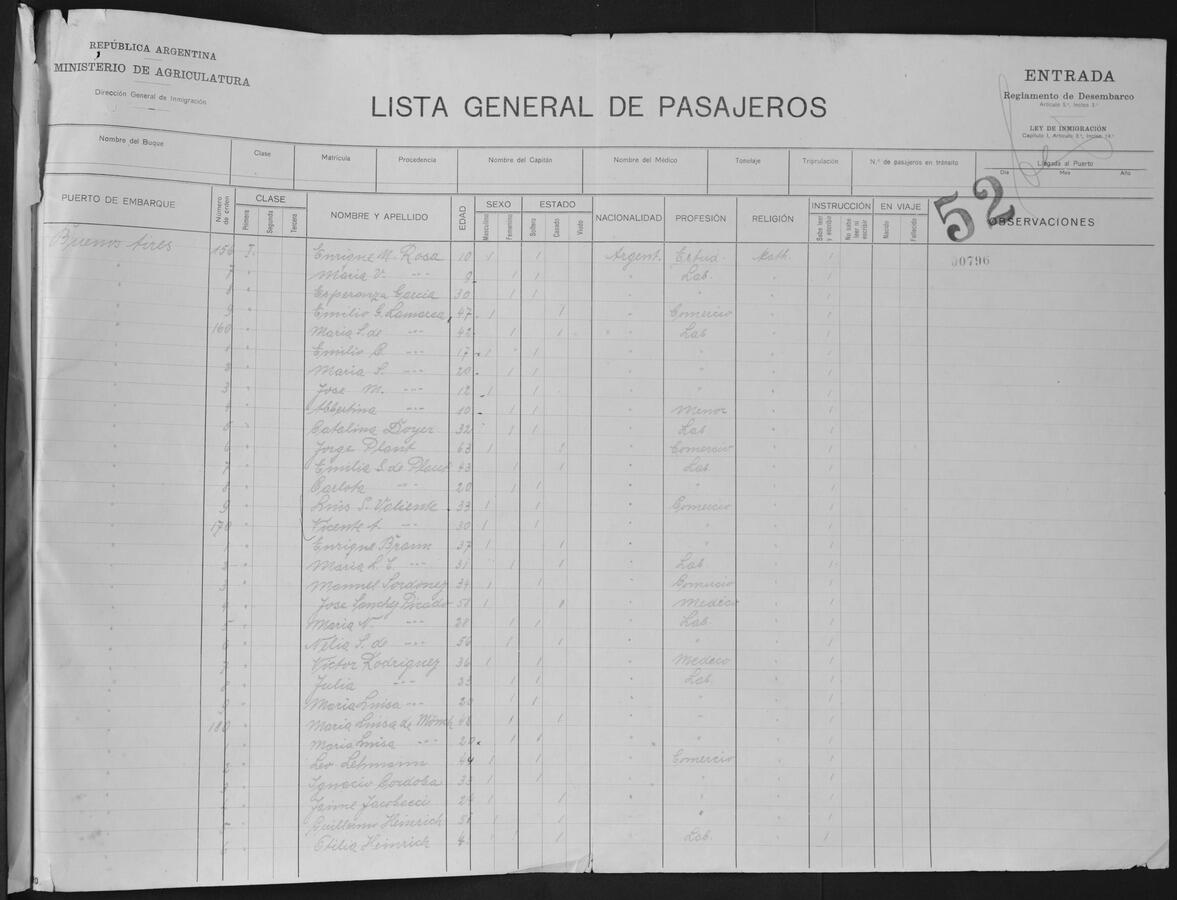 REPÚBLICA ARGENTINA
MINISTERIO DE AGRICULTURA
Dirección General de Inmigración
LISTA GENERAL DE PASAJEROS
ENTRADA
Reglamento de Desembarco
Artículo 5º, Inciso 3º
LEY DE INMIGRACIÓN
Capítulo I, Artículo 3º, Inciso 14º
Nombre del Buque Clase Matrícula Procedencia Nombre del Capitán Nombre del Médico Tonelaje Tripulación N.º de pasajeros en tránsito Llegada al Puerto
Día Mes Año
52
PUERTO DE EMBARQUE Número de orden CLASE NOMBRE Y APELLIDO EDAD SEXO ESTADO NACIONALIDAD PROFESIÓN RELIGIÓN INSTRUCCIÓN EN VIAJE OBSERVACIONES
Primera Segunda Tercera Masculino Femenino Soltero Casado Viudo Sabe leer y escribir No sabe leer ni escribir Nacido Fallecido
00796
Buenos Aires 156 Enrique M. Rosa 10 1 1 Argent. Estud. Kath. 1
" 7 " Maria V. -"- 8 1 1 " Lab. " 1
" 8 " Esperanza Garcia 30 1 1 " " " 1
" 9 " Emilio G. Lamarca 47 1 1 " Comercio " 1
" 160 " Maria S. de -"- 42 1 1 " Lab " 1
" 1 " Emilio C. -"- 17 1 1 " " " 1
" 2 " Maria S. -"- 20 1 1 " " " 1
" 3 " Jose M. -"- 12 1 1 " " " 1
" 4 " Albertina -"- 10 1 1 " Menor " 1
" 5 " Catalina Doyer 32 1 1 " Lab " 1
" 6 " Jorge Plant 63 1 1 " Comercio " 1
" 7 " Emilia S. de 43 1 1 " Lab. " 1
" 8 " Carlota -"- 20 1 1 " " " 1
" 9 " Luis S. Valiente 33 1 1 " Comercio " 1
" 170 " Vicente A. -"- 30 1 1 " " " 1
" 1 " Enrique Braun 37 1 1 " " " 1
" 2 " Maria L. C. -"- 31 1 1 " Lab " 1
" 3 " Manuel 34 1 1 " Comercio " 1
" 4 " Jose Sanchez Picado 58 1 1 " Medico " 1
" 5 " Maria N. -"- 28 1 1 " Lab. " 1
" 6 " Nelia S. de -"- 56 1 1 " " " 1
" 7 " Victor Rodriguez 36 1 1 " Medeco " 1
" 8 " Julia -"- 23 1 1 " Lab. " 1
" 9 " Maria Luisa -"- 20 1 1 " " " 1
" 180 " Maria Luisa de 48 1 1 " " " 1
" 1 " Maria Luisa -"- 20 1 1 " " " 1
" 2 " Leo Lehmann 44 1 1 " Comercio " 1
" 3 " Ignacio Cordoba 33 1 1 " " " 1
" 4 " Jaime Jacobacci 29 1 1 " " " 1
" 5 " Guillermo Heinrich 51 1 1 " " " 1
" 6 " Otilia Heinrich 1 1 " Lab. " 1